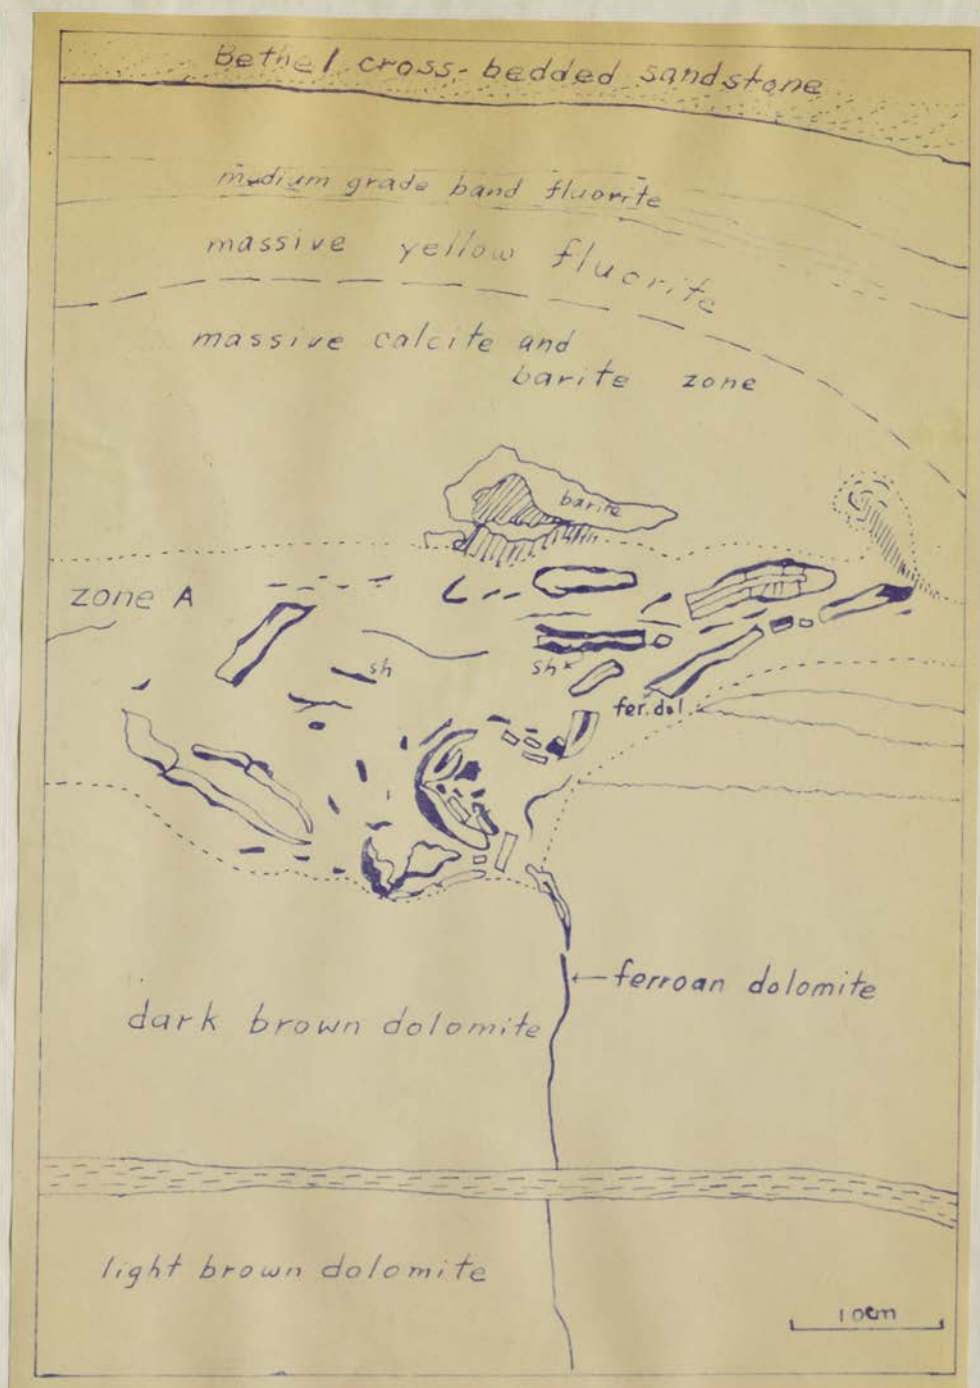 Bethel cross-bedded sandstone
medium grade band fluorite
massive yellow fluorite
massive calcite and
barite zone
barite
zone A
sh
sh
fer. dol.
ferroan dolomite
dark brown dolomite
light brown dolomite
10cm